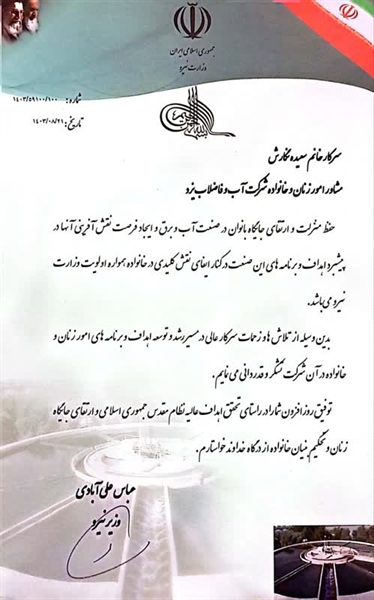 جمهوری اسلامی ایران
وزارت نیرو
شماره: ۱۴۰۳/۵۹۱۰۰/۱۰۰
تاریخ: ۱۴۰۳/۰۸/۲۱
بسم الله الرحمن الرحیم
سرکار خانم سعیده نگارش
مشاور امور زنان و خانواده شرکت آب و فاضلاب یزد
حفظ منزلت و ارتقای جایگاه بانوان در صنعت آب و برق و ایجاد فرصت نقش آفرینی آنها در
پیشبرد اهداف و برنامه های این صنعت در کنار ایفای نقش کلیدی در خانواده همواره اولویت وزارت
نیرو می باشد.
بدین وسیله از تلاش ها و زحمات سرکار عالی در مسیر رشد و توسعه اهداف و برنامه های امور زنان و
خانواده در آن شرکت تشکر و قدردانی می نمایم.
توفیق روز افزون شما را در راستای تحقق اهداف عالیه نظام مقدس جمهوری اسلامی و ارتقای جایگاه
زنان و تحکیم بنیان خانواده از درگاه خداوند خواستارم.
عباس علی آبادی
وزیر نیرو